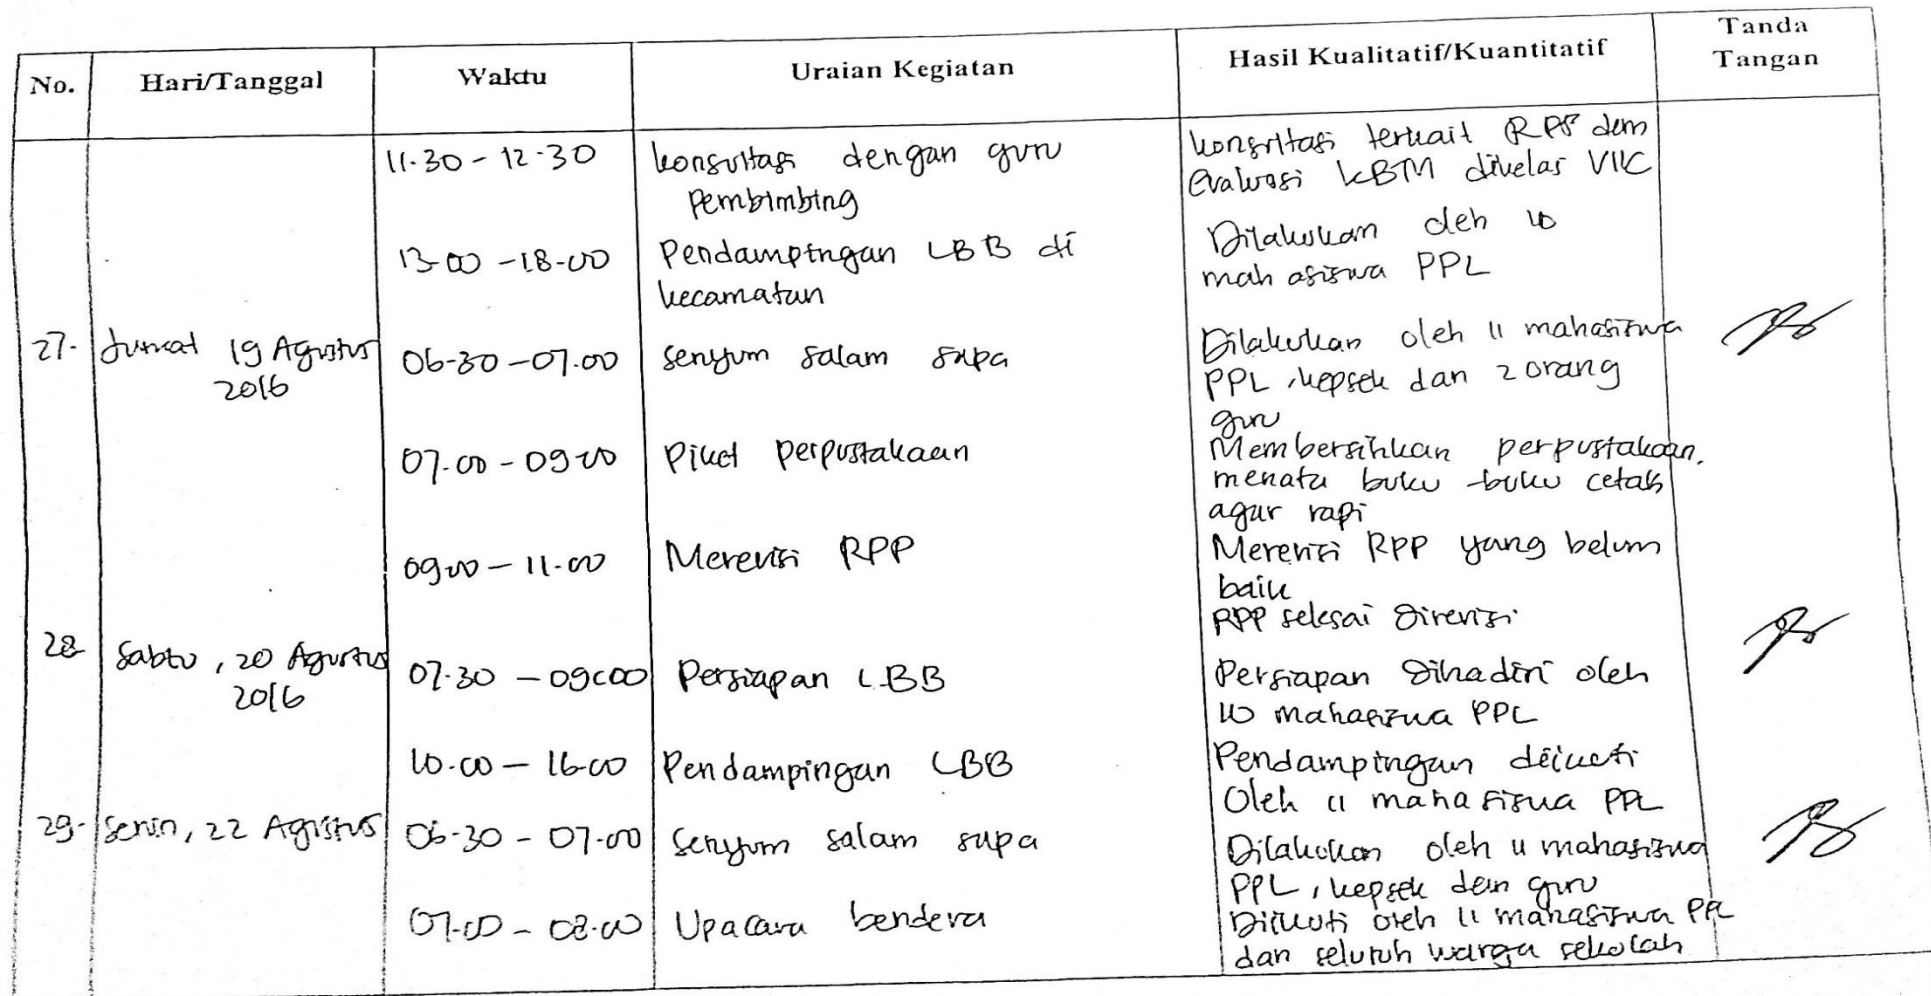 No. Hari/Tanggal Waktu Uraian Kegiatan Hasil Kualitatif/Kuantitatif Tanda Tangan
11.30 - 12.30 konsultasi dengan guru konsultasi terkait RPP dan
Pembimbing evaluasi KBM dikelas VIIC
13.00 - 18.00 Pendampingan LBB di Dilakukan oleh 10
kecamatan mahasiswa PPL
27. Jumat 19 Agustus 06.30 - 07.00 senyum salam sapa Dilakukan oleh 11 mahasiswa
2016 PPL, kepsek dan 2 orang
guru
07.00 - 09.00 Piket perpustakaan Membersihkan perpustakaan,
menata buku-buku cetak
agar rapi
09.00 - 11.00 Merevisi RPP Merevisi RPP yang belum
baik
RPP selesai direvisi
28. Sabtu, 20 Agustus 07.30 - 09.00 Persiapan LBB Persiapan dihadiri oleh
2016 10 mahasiswa PPL
10.00 - 16.00 Pendampingan LBB Pendampingan diikuti
Oleh 11 mahasiswa PPL
29. Senin, 22 Agustus 06.30 - 07.00 Senyum salam sapa Dilakukan oleh 11 mahasiswa
PPL, kepsek dan guru
07.00 - 08.00 Upacara bendera Diikuti oleh 11 mahasiswa PPL
dan seluruh warga sekolah